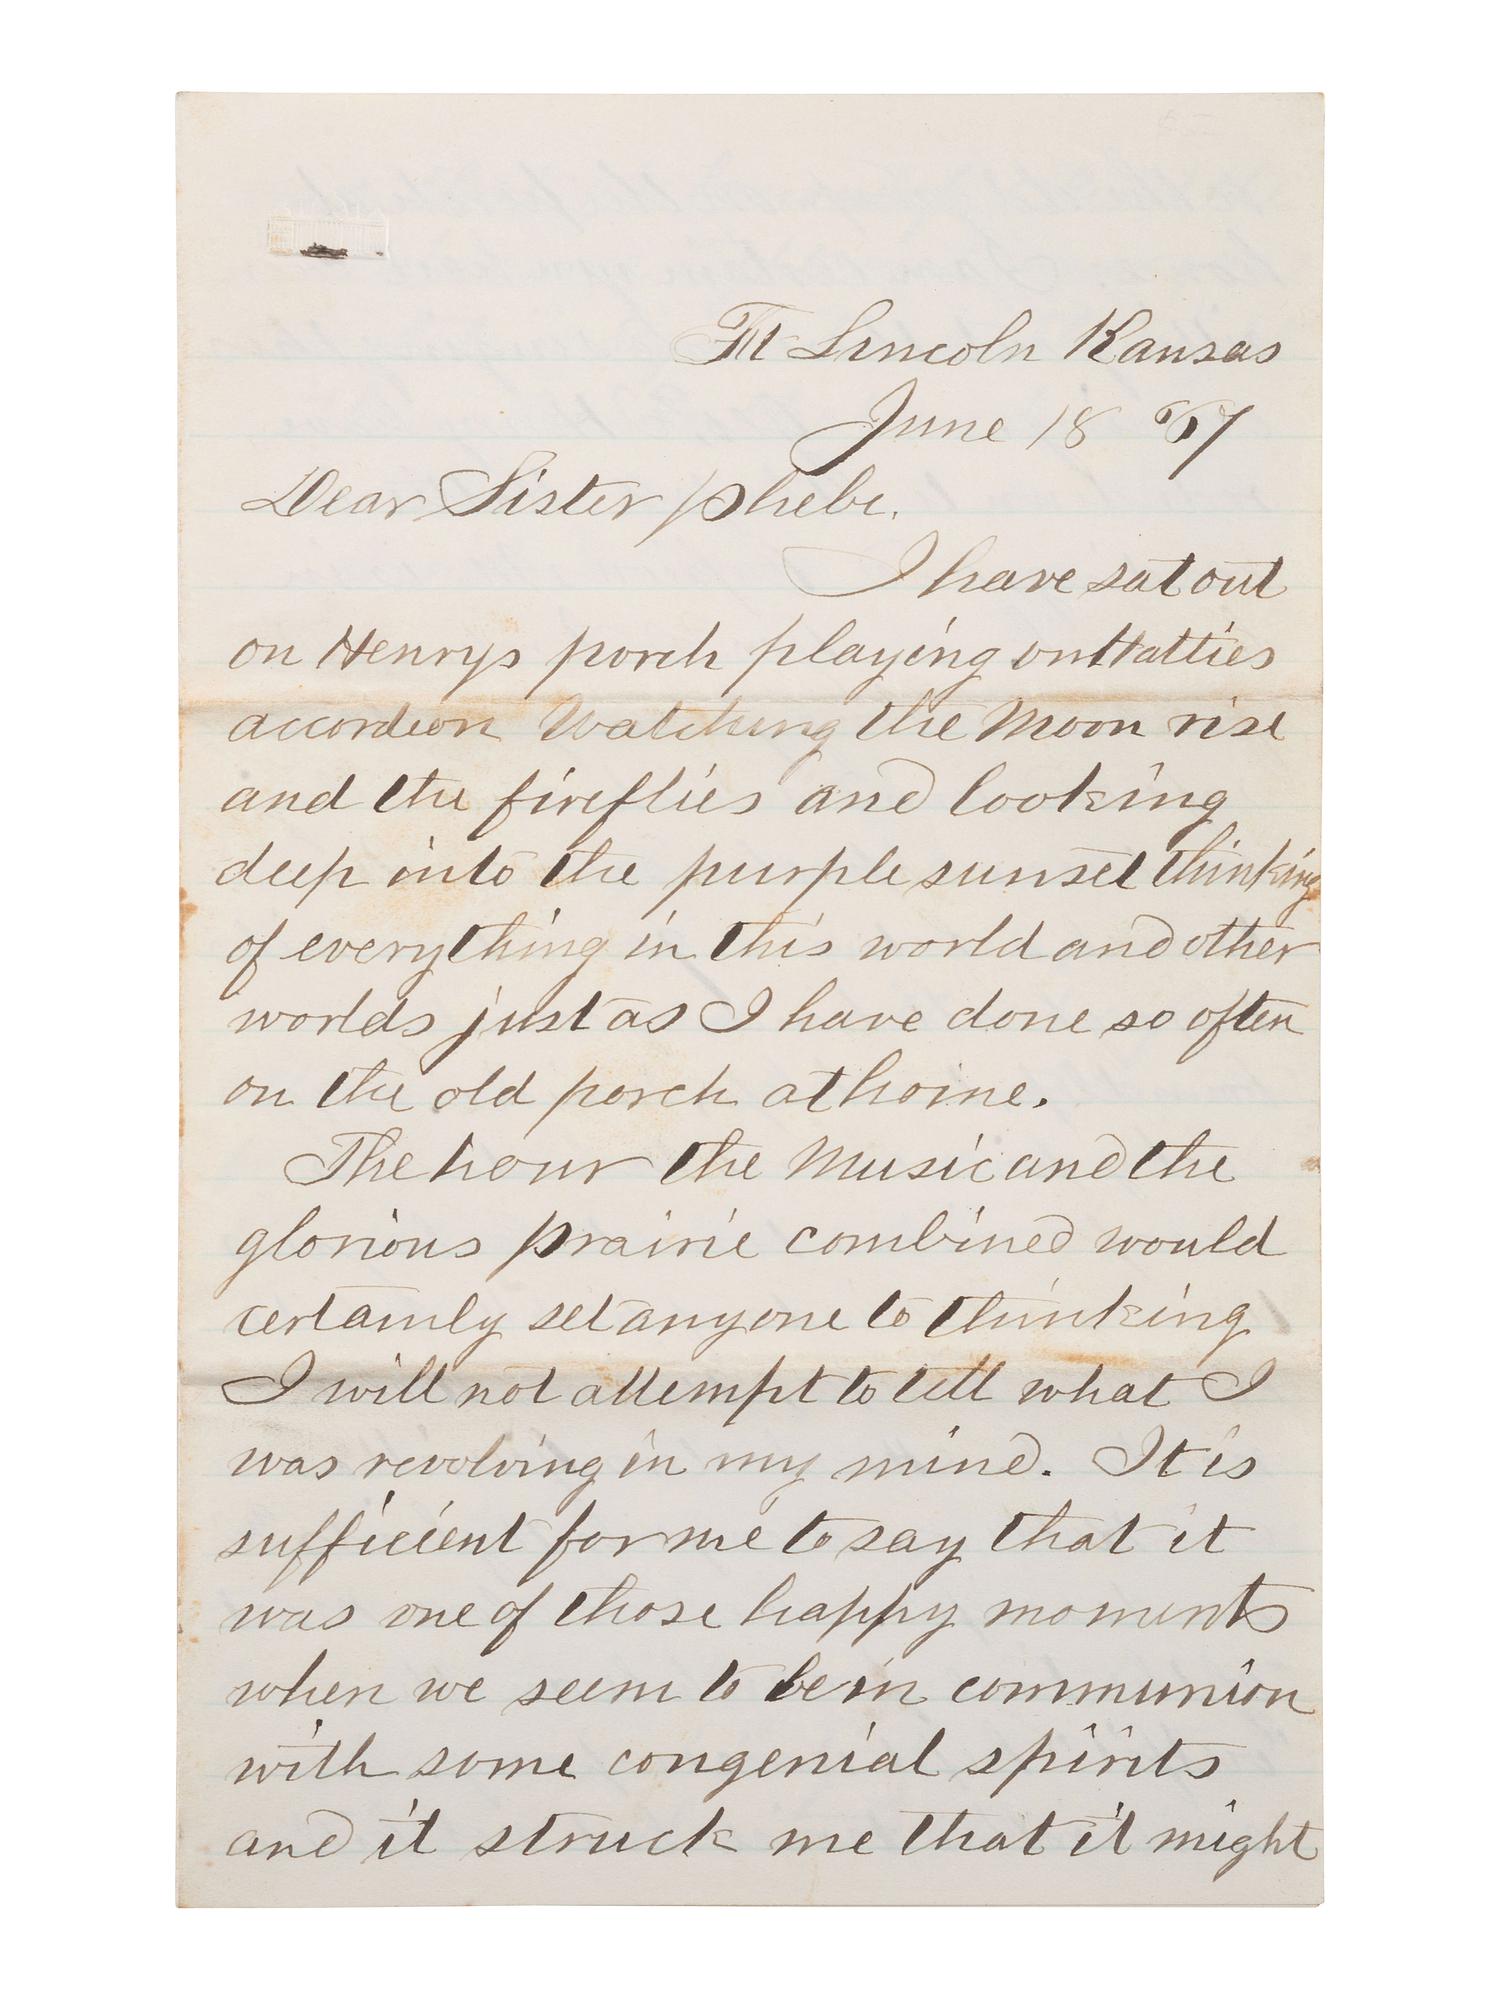 Ft Lincoln Kansas
June 18 67
Dear Sister Phebe.
I have sat out
on Henrys porch playing on Hatties
accordeon Watching the Moon rise
and the fireflies and looking
deep into the purple sunset thinking
of everything in this world and other
worlds just as I have done so often
on the old porch at home.
The hour the Music and the
glorious prairie combined would
certainly set anyone to thinking
I will not attempt to tell what I
was revolving in my mind. It is
sufficient for me to say that it
was one of those happy moments
when we seem to be in communion
with some congenial spirits
and it struck me that it might